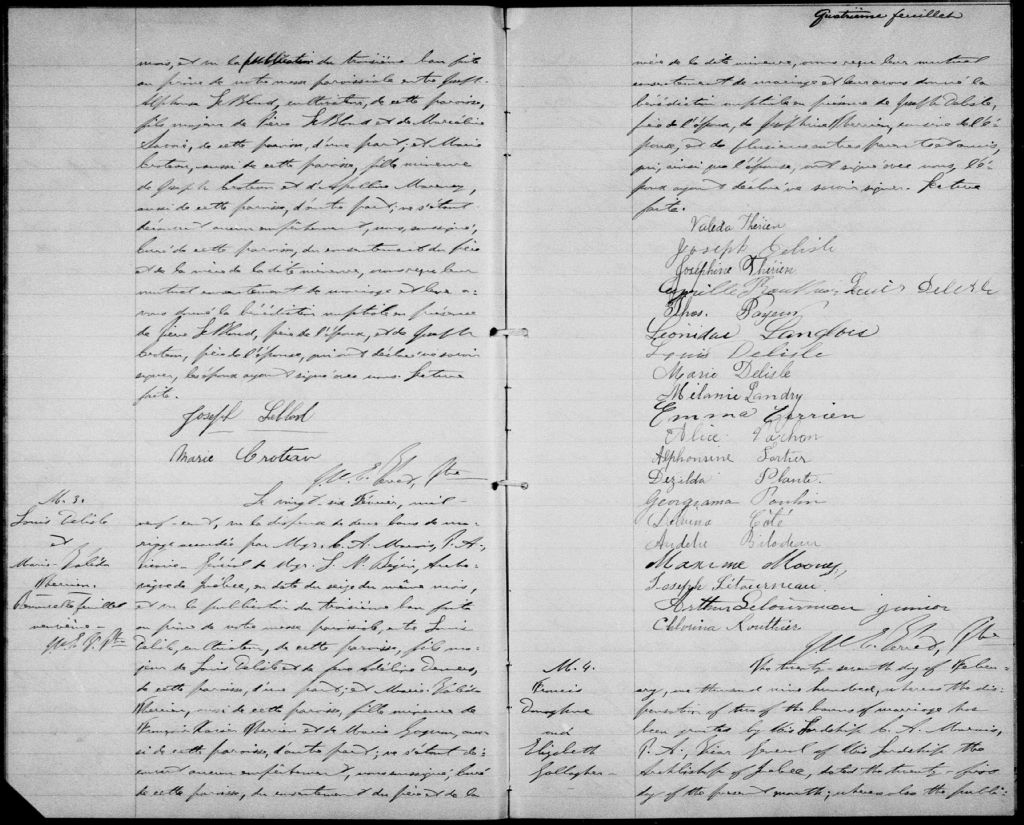 mois, et vu la publication du troisième ban faite
au prône de notre messe paroissiale entre Joseph
Alphonse LeBlond, cultivateur, de cette paroisse,
fils majeur de Pierre LeBlond et de Marcelline
Savoie, de cette paroisse, d'une part; et Marie
Croteau, aussi de cette paroisse, fille mineure
de Joseph Croteau et d'Apolline
aussi de cette paroisse, d'autre part; ne s'étant
découvert aucun empêchement, nous, soussigné,
Curé de cette paroisse, du consentement du père
et de la mère de la dite mineure, avons reçu leur
mutuel consentement de mariage et leur a-
vons donné la bénédiction nuptiale en présence
de Pierre LeBlond, père de l'époux, et de Joseph
Croteau, père de l'épouse, qui ont déclaré ne savoir
signer, les époux ayant signé avec nous. Lecture
faite.
Joseph Leblond
Marie Croteau
Ptre
M. 3.
Louis Delisle
et
Marie Valéda
Therrien.
feuillet
Ptre
Le vingt-six Février, mil-
neuf-cent, vu la dispense de deux bans de ma-
riage accordée par Mgr. C. A. Marois, P. A.,
Vicaire-Général de Mgr. L. N. Bégin, Arche-
vêque de Québec, en date du seize du même mois,
et vu la publication du troisième ban faite
au prône de notre messe paroissiale, entre Louis
Delisle, cultivateur, de cette paroisse, fils ma-
jeur de Louis Delisle et de feue Adéline Demers,
de cette paroisse, d'une part; et Marie Valéda
Therrien, aussi de cette paroisse, fille mineure de
François Xavier Therrien et de Marie Gagnon, aus-
si de cette paroisse, d'autre part; ne s'étant dé-
couvert aucun empêchement, nous, soussigné, Curé
de cette paroisse, du consentement du père et de la
Quatrième feuillet
mère de la dite mineure, avons reçu leur mutuel
consentement de mariage et leur avons donné la
bénédiction nuptiale en présence de Joseph Delisle,
frère de l'époux, de Joséphine Therrien, de l'é-
pouse, et de plusieurs autres parents et amis,
qui, ainsi que l'épouse, ont signé avec nous, l'é-
poux ayant déclaré ne savoir signer. Lecture
faite.
Valeda Thérien
Joseph Delisle
Joséphine Thérien
Louis Delisle
Thos. Payeur
Léonidas Langlois
Louis Delisle
Marie Delisle
Mélanie Landry
Emma Terrien
Alice Vachon
Alphonsine Fortier
Dezilda Plante
Georgiana Poulin
Delvina Côté
Audelie Bilodeau
Maxime Mooney,
Joseph Létourneau
Arthur Letourneau junior
Clorina Routhier
Ptre
M. 4.
Francis
Donoghue
and
Elizabeth
Gallagher
The twenty-seventh day of Febru-
ary, one thousand nine hundred, whereas the dis-
pensation of two of the banns of marriage has
been granted by His Lordship C. A. Marois,
P. A., Vicar General of His Lordship the
Archbishop of Quebec, dated the twenty-first
day of the present month; whereas also the publi-